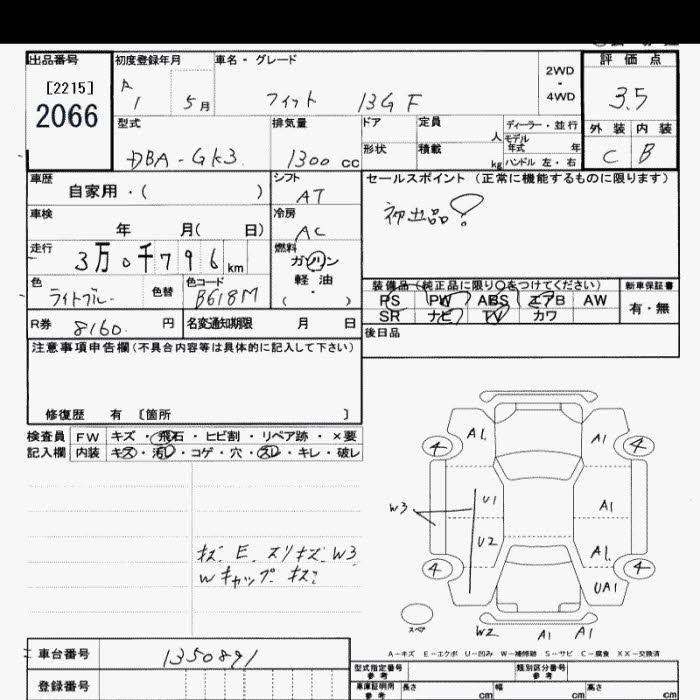 出品番号 初度登録年月 車名・グレード 2WD・4WD 評価点
[2215]
2066
R 1 5月 フィット 13G F 3.5
型式 排気量 ドア 定員 人 ディーラー・並行 外装 内装
DBA-GK3 1300cc 形状 積載 kg モデル年式 年 ハンドル 左・右 C B
車歴 シフト セールスポイント (正常に機能するものに限ります)
自家用・( ) AT 初出品!
車検 冷房
年 月( 日) AC
走行 燃料
3万0千796km ガソリン 軽油 ( ・ )
色 色替 色コード 装備品(純正品に限り○をつけてください) 新車保証書
ライトブルー B618M PS PW ABS エアB AW 有・無
SR ナビ TV カワ
R券 8160円 名変通知期限 月 日 後日品
注意事項申告欄(不具合内容等は具体的に記入して下さい)
修復歴 有 〔箇所 〕
検査員 FW キズ・飛石・ヒビ割・リペア跡・×要
記入欄 内装 キズ・汚レ・コゲ・穴・スレ・キレ・破レ
A1 A1
4 4
W3 U1 A1
U2 A1
4 4
UA1
キズ E スリキズ W3
Wキャップ キズ
スペア W2 A1 A1
A-キズ E-エクボ U-凹み W-補修跡 S-サビ C-腐食 XX-交換済
車台番号 1350891
型式指定番号 類別区分番号
参考 参考
登録番号
車庫証明用 長さ cm 幅 cm 高さ cm
参考